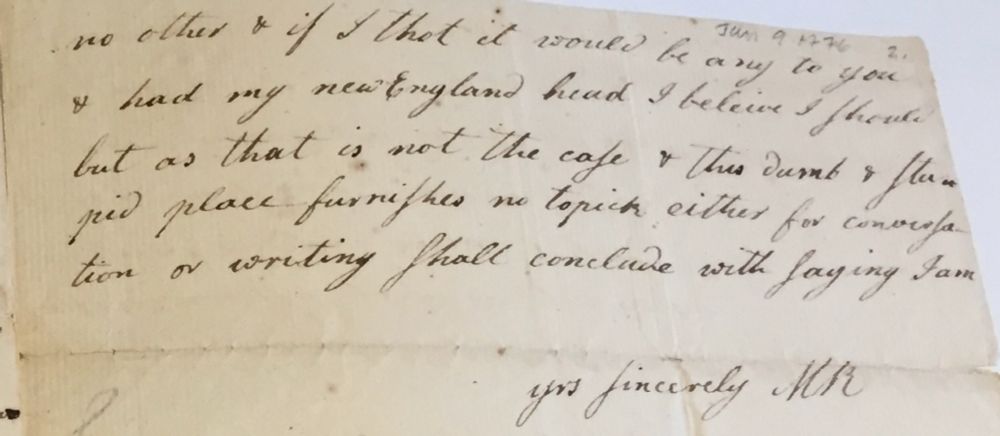 Jan 9 1776 2.
no other & if I thot it would be any to you
& had my new England head I beleive I should
but as that is not the case & this dumb & stu-
pid place furnishes no topick either for conversa-
tion or writing shall conclude with saying I am
yrs sincerely MR